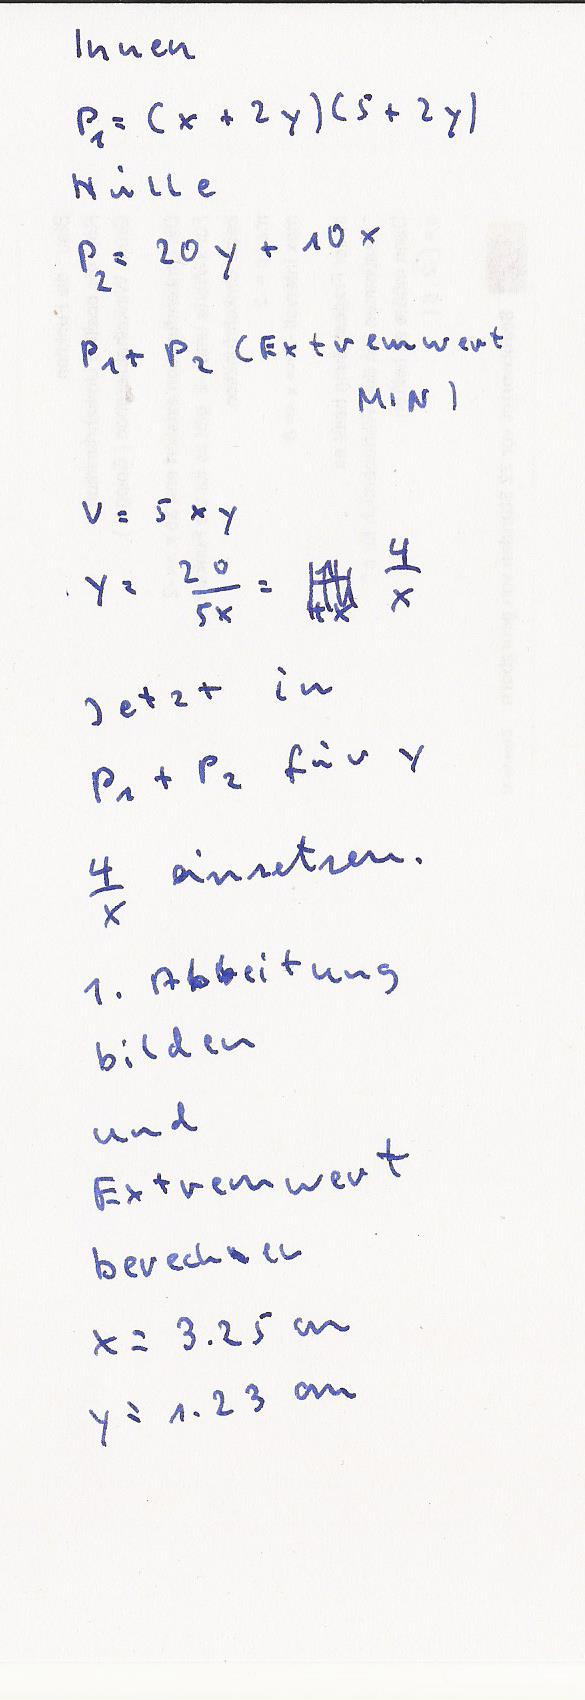 Innen
P₁ = (x + 2y)(5 + 2y)
Hülle
P₂ = 20y + 10x
P₁ + P₂ (Extremwert
MIN)
V = 5xy
y = 20/5x = 4/x
Jetzt in
P₁ + P₂ für y
4/x einsetzen.
1. Ableitung
bilden
und
Extremwert
berechnen
x = 3.25 cm
y = 1.23 cm